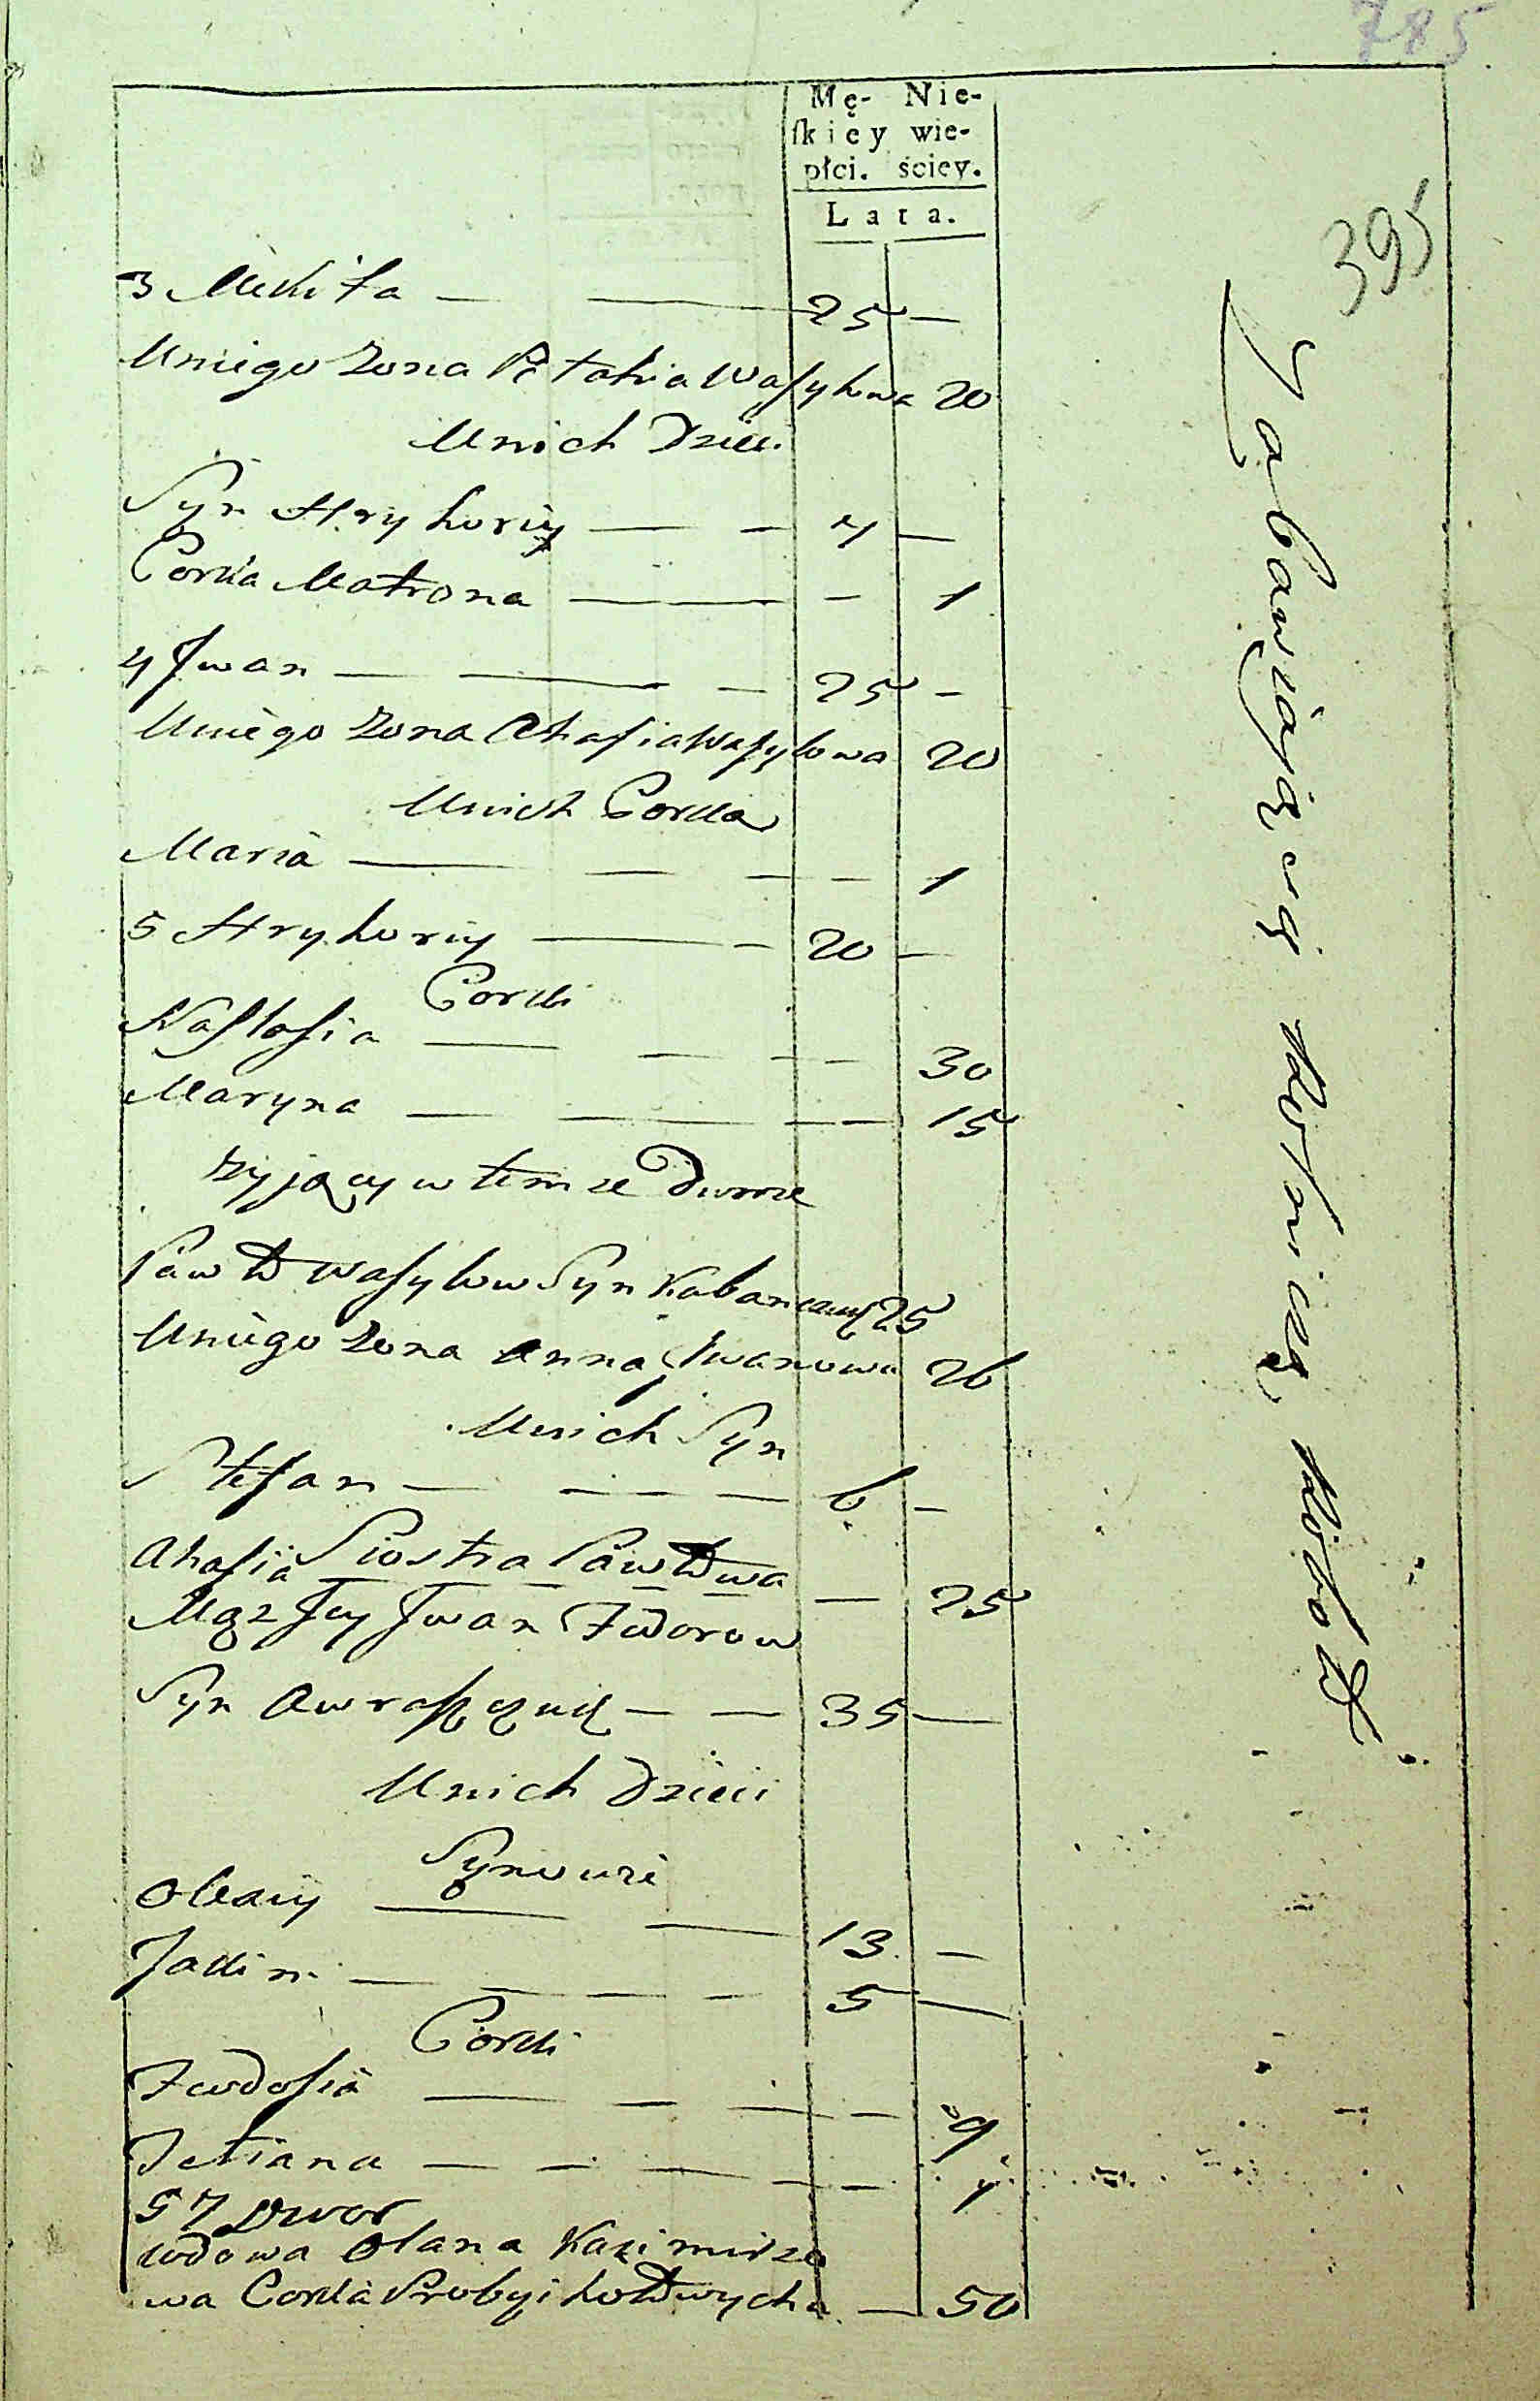 785
Mę- Nie-
ſkiey wie-
płci. ściey.
Lata.
395
3 Mikita — — 25 —
Uniego Zona Pelahia Wasylowa 20
Unich Dzieci
Syn Hryhoriy — — 4 —
Corka Matrona — — 1
4 Jwan — — — 25 —
Uniego Zona Ahafia Wasylowa 20
Unich Corka
Maria — — — — 1
5 Hryhoriy — — 20 —
Corki
Nastasia — — — — 30
Maryna — — — — 15
zyjący w temze Dworze
Paweł Wasylow Syn 25
Uniego Zona Anna Jwanowa 26
Unich Syn
Stefan — — — — 6 —
Ahafia Siostra Pawłowa — 25
Mąz Jey Jwan Fedorow
Syn — — 35 —
Unich Dzieci
Synowie
Olexiy — — 13 —
Jakim — — — — 5 —
Corki
Fewdosia — — — — 9
Tetiana — — — — — 4
57 Dwor
Wdowa Olana Kazimirzo
wa Corka — 50
Zabawiający się rolniczą robotą